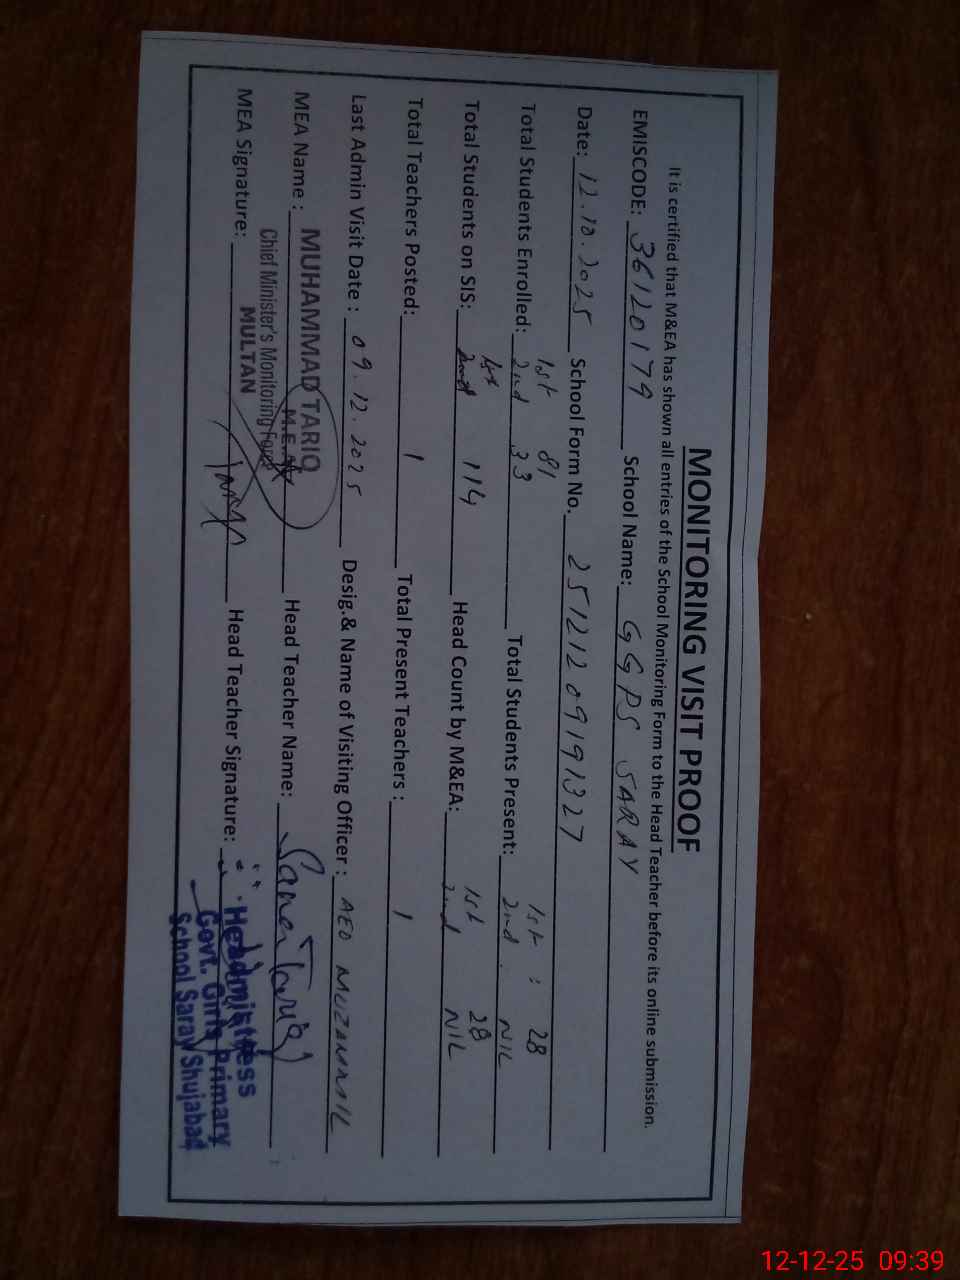 MONITORING VISIT PROOF
It is certified that M&EA has shown all entries of the School Monitoring Form to the Head Teacher before its online submission.
EMISCODE: 36120179 School Name: GGPS SARAY
Date: 12.10.2025 School Form No. 25121209191327
Total Students Enrolled: 1st 81 2nd 33 Total Students Present: 1st : 28 2nd . NIL
Total Students on SIS: 114 Head Count by M&EA: 1st 28 2nd NIL
Total Teachers Posted: 1 Total Present Teachers : 1
Last Admin Visit Date : 09.12.2025 Desig.& Name of Visiting Officer : AEO MUZAMMIL
MEA Name : MUHAMMAD TARIQ Head Teacher Name:
M.E.A
Chief Minister's Monitoring Force
MULTAN
MEA Signature: Head Teacher Signature:
Headmistress
Govt. Girls Primary
School Saray Shujabad
12-12-25 09:39